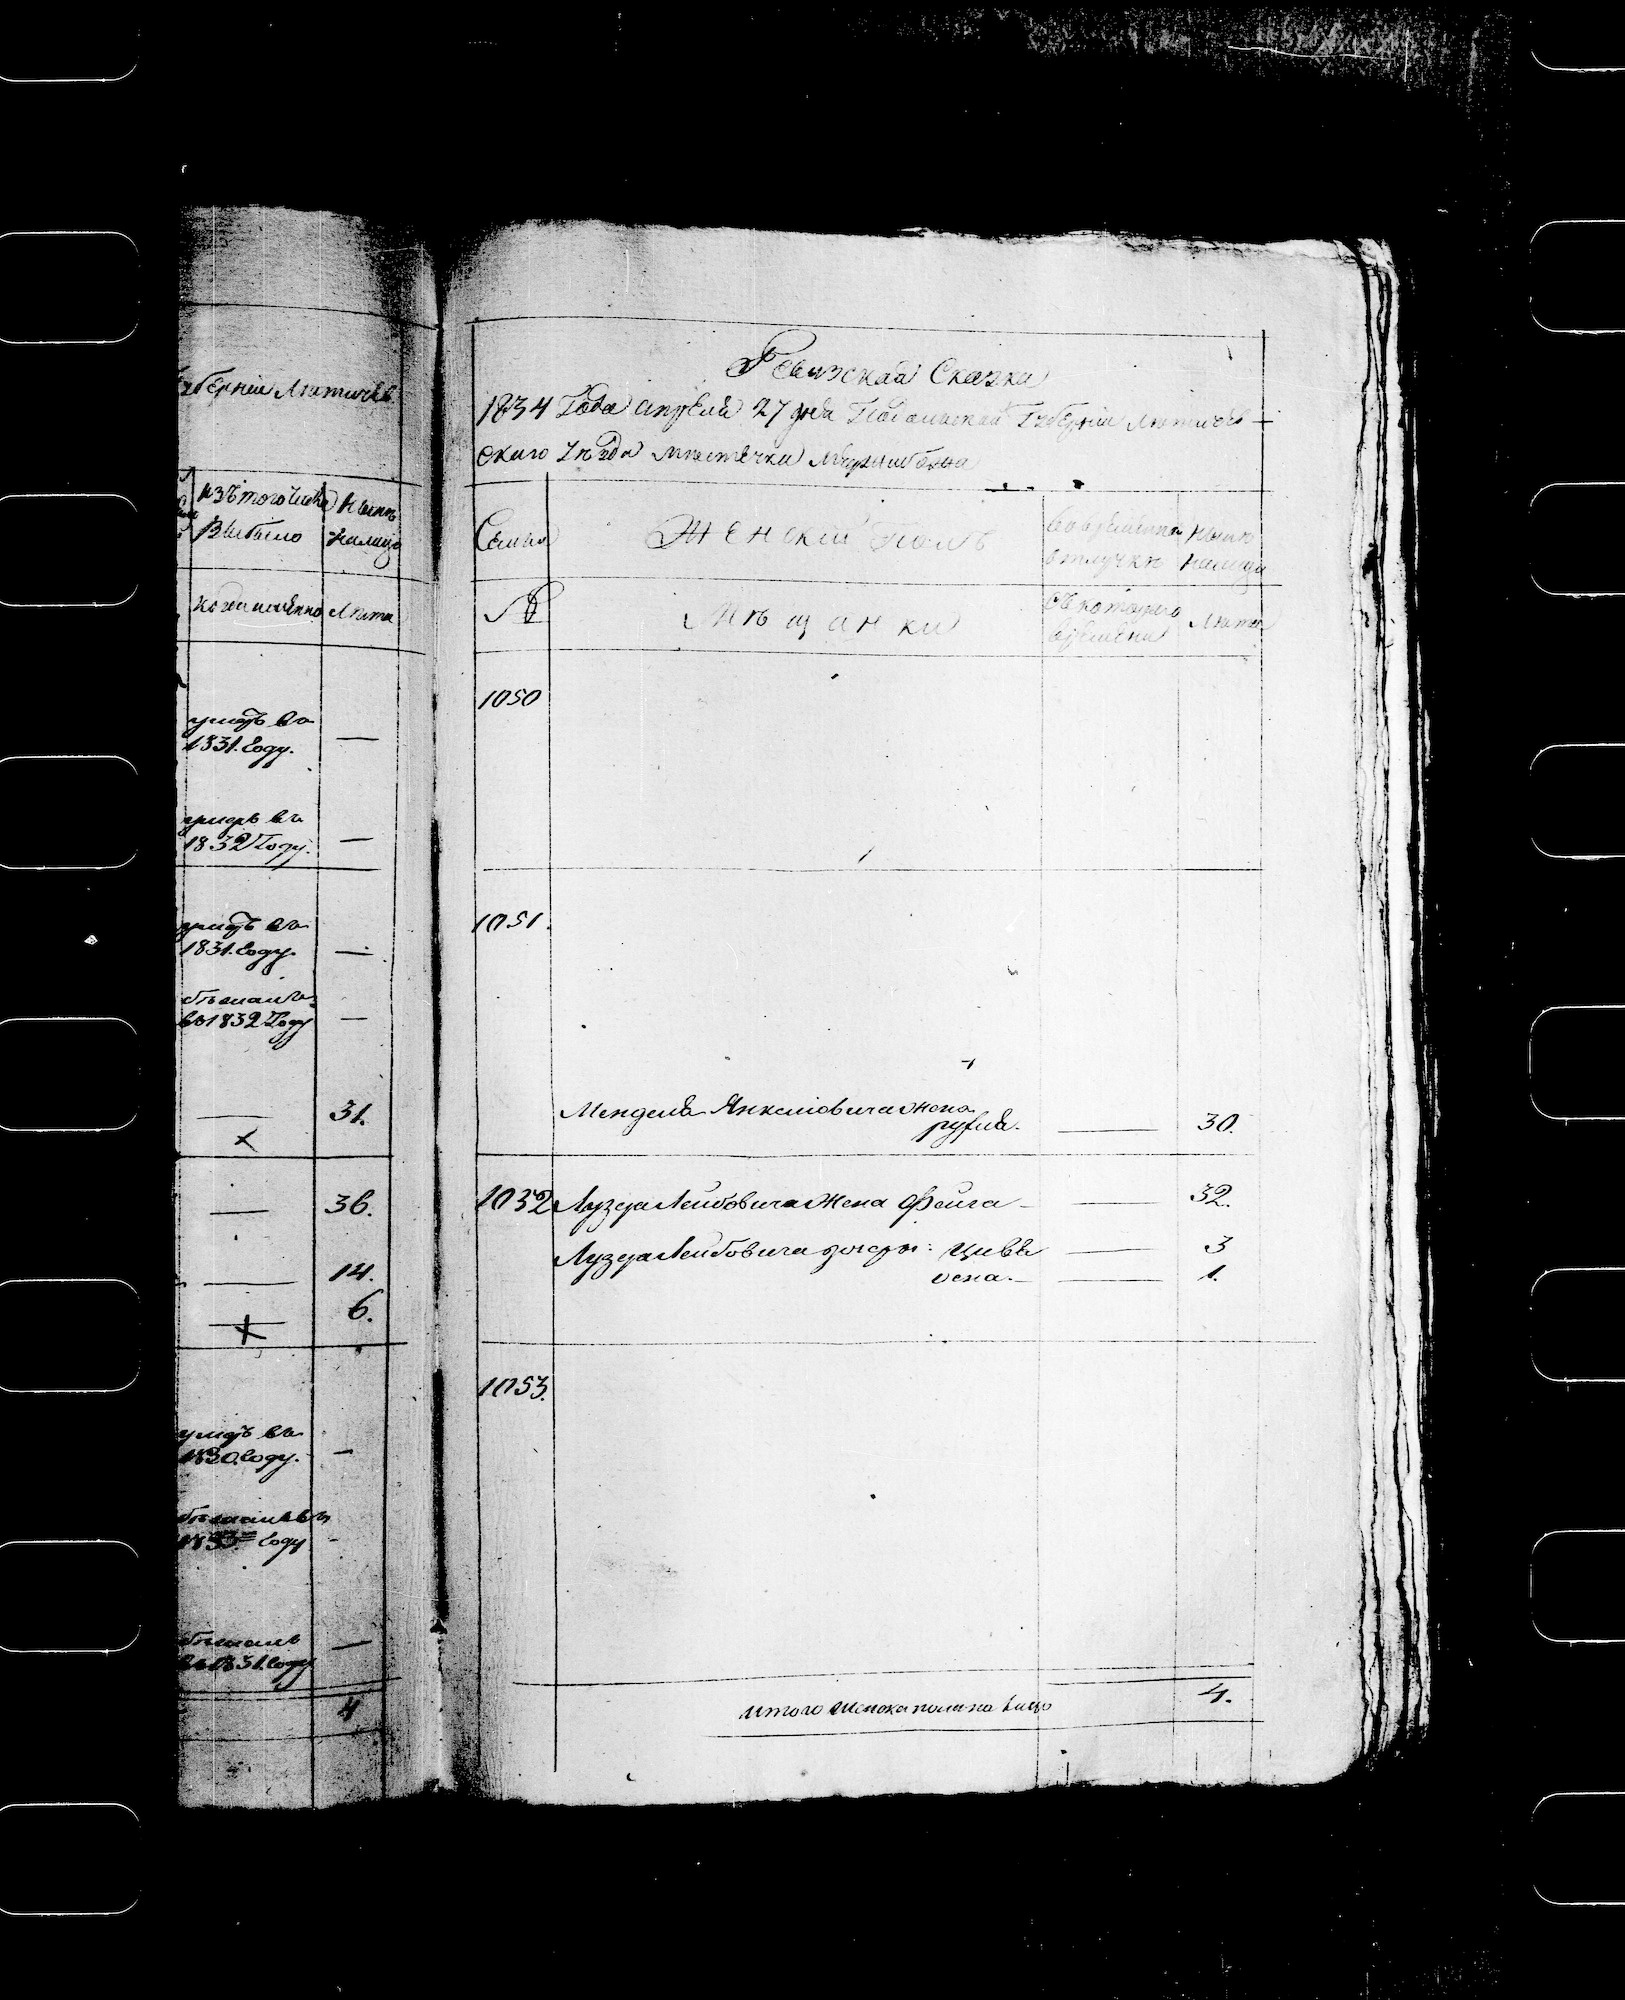 губерніи Летичев
изъ того числа
выбыло
ныне
налицо
когда именно
Лета
умеръ въ
1831. Году.
—
умеръ въ
1832 Году.
—
умеръ въ
1831. Году.
—
въ 1832 Году
—
— 31.
— 36.
— 14.
— 6.
умеръ въ
1830. Году.
—
Году
-
въ 1831. Году
—
4
Ревизская Сказка
1834 Года апреля 27 дня Подольской Губерніи Летичев
скаго уезда местечка Меджибожа
Семьи
Женскій полъ
во временной
отлучке
ныне
налицо
№
Мещанки
съ котораго
времени
Лета
1050
1051.
Менделя Янкелiовича жена
рухля. — 30.
1032 Лузера Лейбовича Жена Фейга — 32.
Лузера Лейбовича дочери: Цивья — 3
— 1.
1053.
итого женска пола на лицо 4.